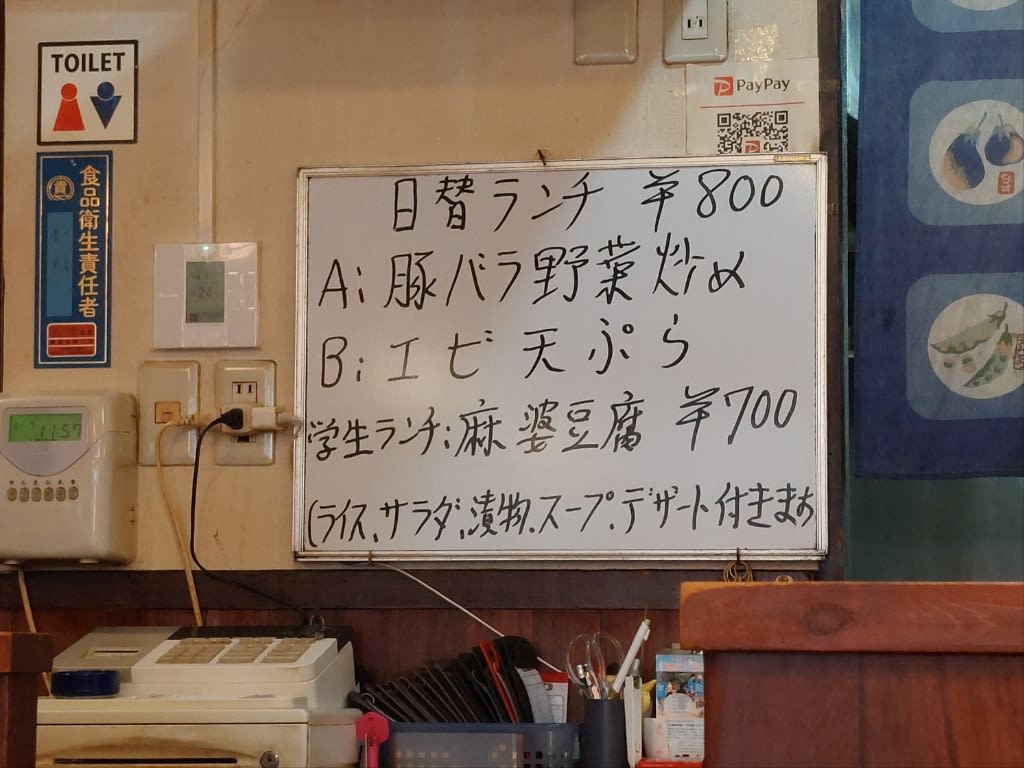 TOILET
食品衛生責任者
PayPay
日替ランチ ¥800
A; 豚バラ野菜炒め
B; エビ天ぷら
学生ランチ; 麻婆豆腐 ¥700
(ライス、サラダ、漬物、スープ、デザート付きます
11:57